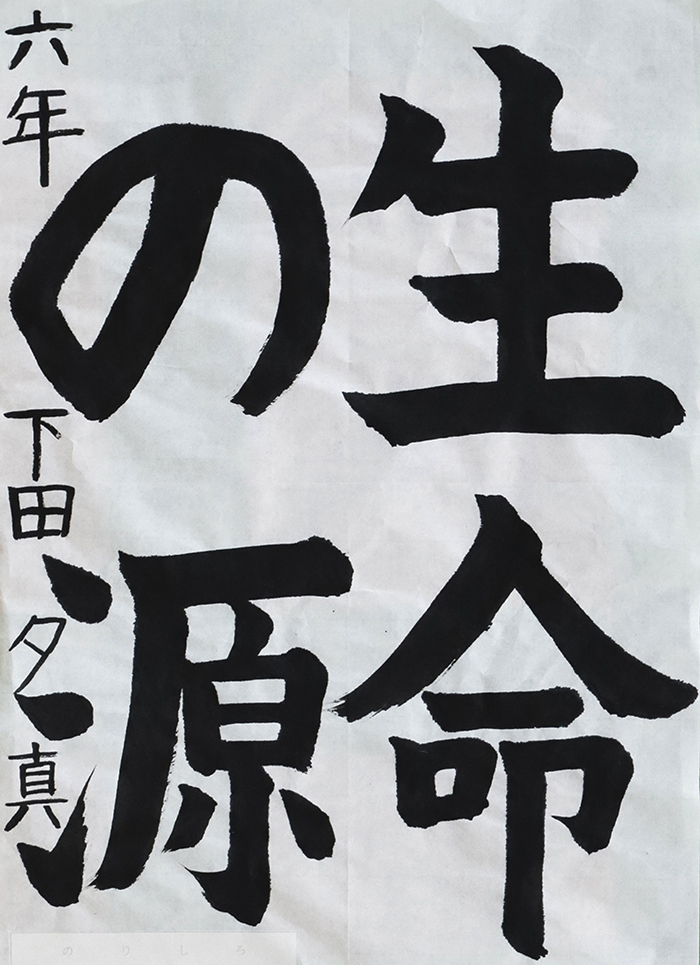 生命
の源
六年 下田夕真
のりしろ